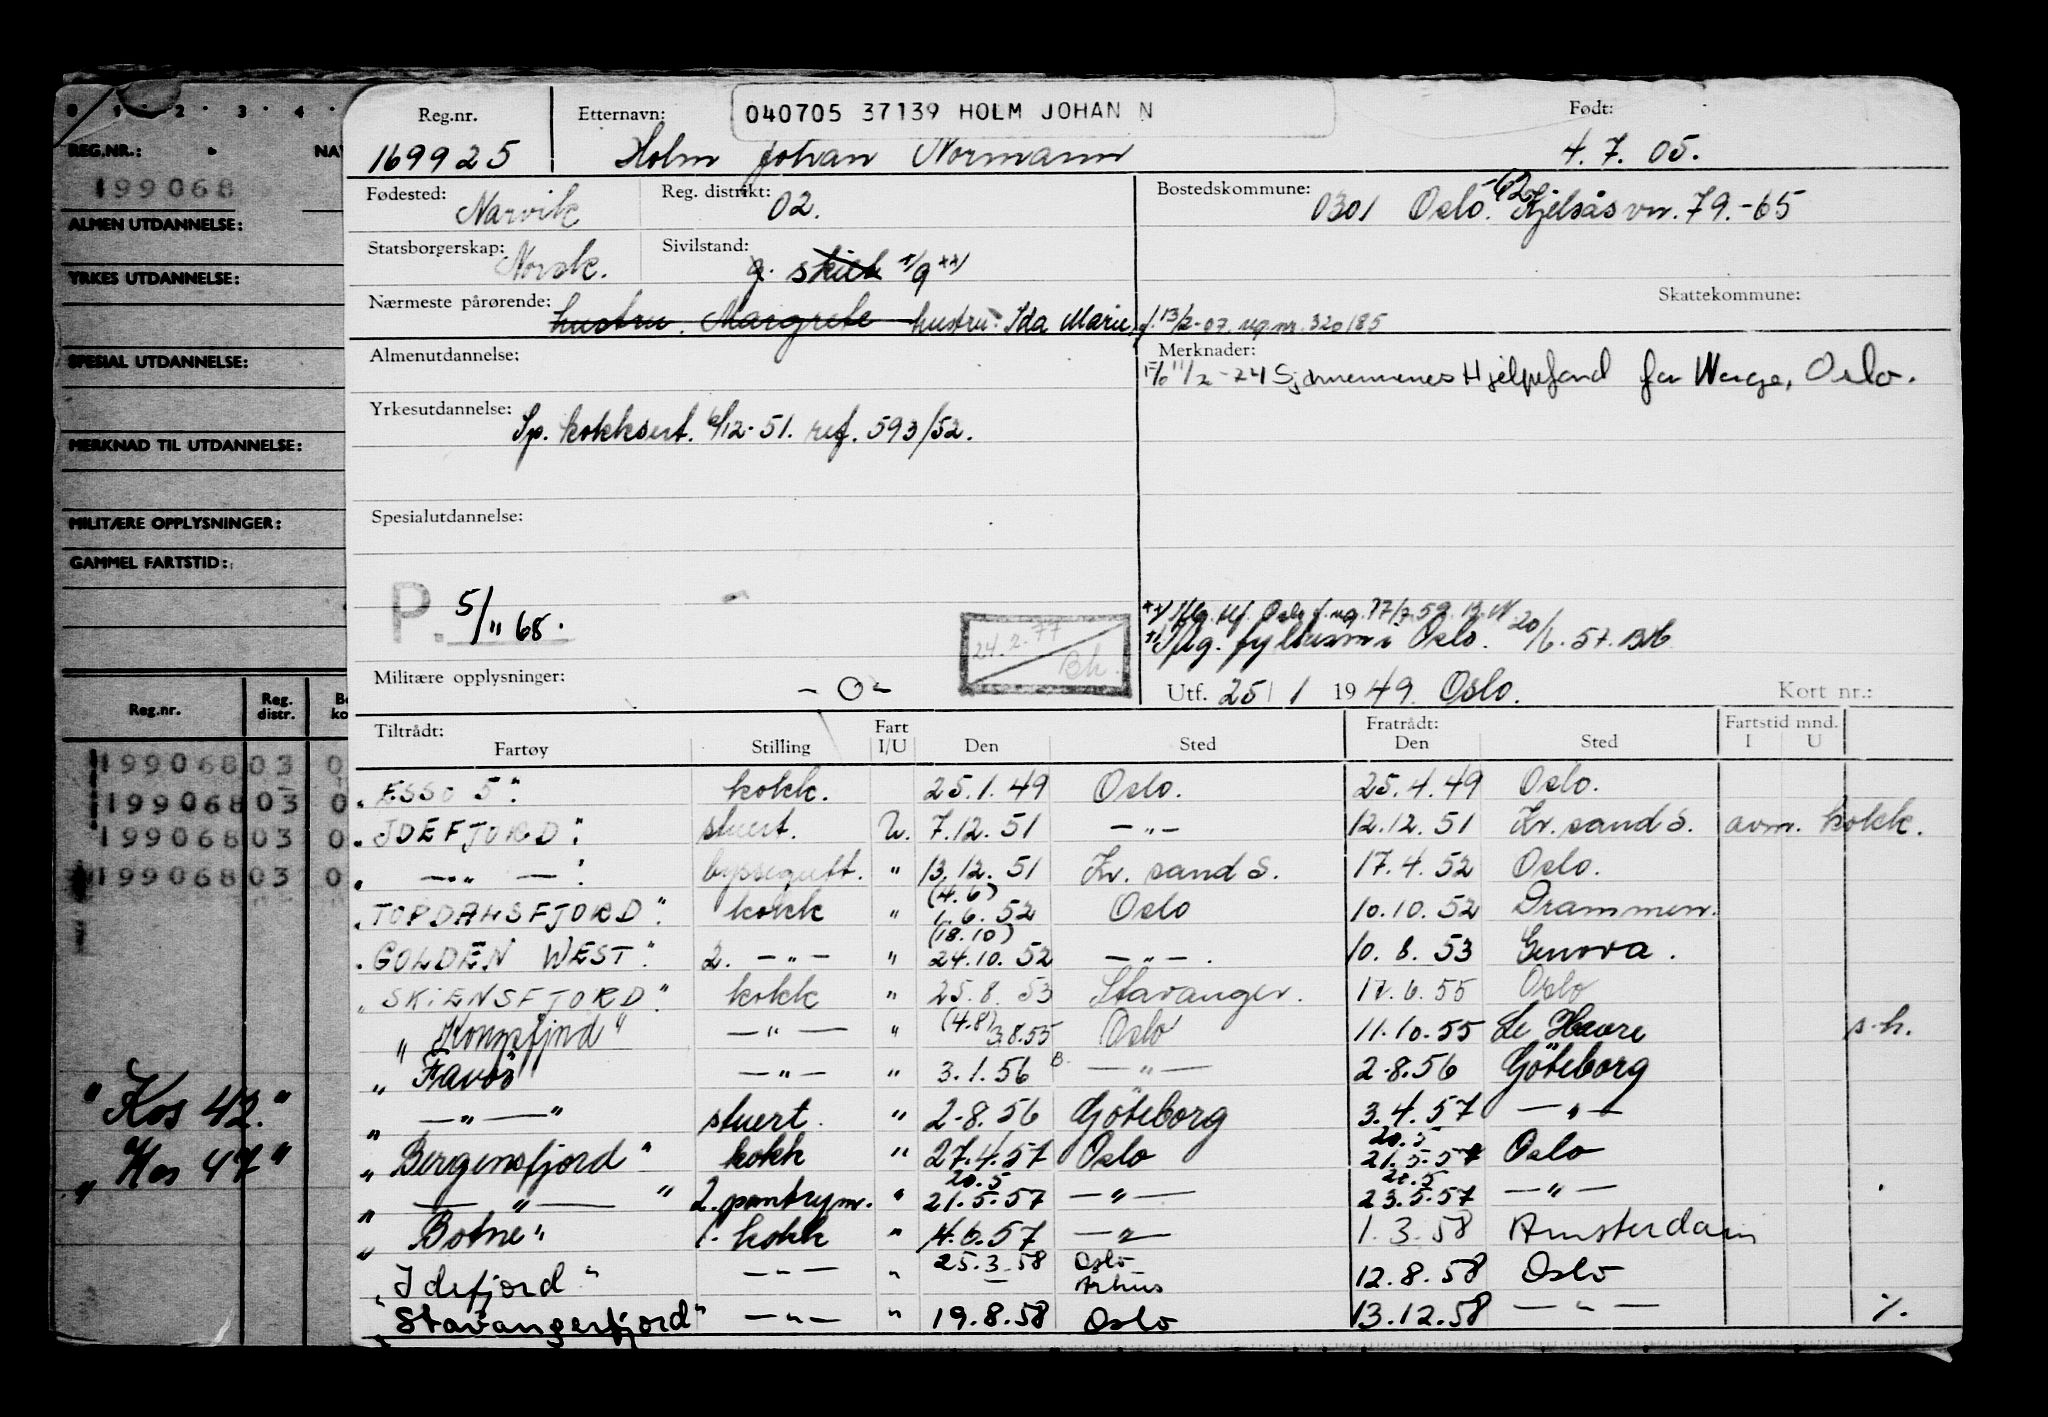 0 · 1 · 2 · 3 · 4 ·
REG.NR.: NAV
199068
ALMEN UTDANNELSE:
YRKES UTDANNELSE:
SPESIAL UTDANNELSE:
MERKNAD TIL UTDANNELSE:
MILITÆRE OPPLYSNINGER:
GAMMEL FARTSTID:
Reg.nr. Reg. distr. Bo ko
199068 03 0
199068 03 0
199068 03 0
199068 03 0
"Kos 42."
"Kos 47"
Reg.nr. Etternavn: 040705 37139 HOLM JOHAN N Født:
169925 Holm Johan Normann 4.7.05.
Fødested: Narvik Reg. distrikt: 02. Bostedskommune: 0301 Oslo.-62 Kjelsåsvn. 79.-65
Statsborgerskap: Norsk. Sivilstand: g. skilt x/ g xx/
Nærmeste pårørende: hustru. Margrete hustru: Ida Marie, f. 13/2-07. reg.nr. 320185 Skattekommune:
Almenutdannelse: Merknader:
11/2-24 Sjømennenes Hjelpefond for Norge, Oslo.
Yrkesutdannelse: Sp. kokksert. 6/12-51. ref. 593/52.
Spesialutdannelse:
P. 5/11 68.
24.2.77 Bh.
xx/ Iflg. Oslo 17/7.59.
x/ Iflg. fylkesm i Oslo. 20/6.57.
Militære opplysninger: - 0 - Utf. 25/1 1949. Oslo. Kort nr.:
Tiltrådt: Fart Fratrådt: Fartstid mnd.
Fartøy Stilling I/U Den Sted Den Sted I U
"ESSO 5". kokk. 25.1.49 Oslo. 25.4.49 Oslo.
"IDEFJORD". stuert. U. 7.12.51 -"- 12.12.51 Kr.sand S. avm. kokk.
" -"- ". byssegutt. " 13.12.51 Kr.sand S. 17.4.52 Oslo.
"TOPDALSFJORD". kokk " (4.6) 1.6.52 Oslo 10.10.52 Drammen.
"GOLDEN WEST". 2. -"- " (18.10) 24.10.52 -"-. 10.8.53 Genova.
"SKIENSFJORD". kokk " 25.8.53 Stavanger. 17.6.55 Oslo
"Kongsfjord" -"- " (4.8) 3.8.55 Oslo 11.10.55 Le Havre s.h.
"Favor -"- " 3.1.56 B. -"- 2.8.56 Göteborg
" -"- " stuert. " 2.8.56 Göteborg 3.4.57 -"-
"Bergensfjord" kokk " 27.4.57 Oslo 20.5 21.5.57 Oslo
" -"- " 2. pantrym. " 20.5 21.5.57 -"- 20.5 23.5.57 -"-
"Botne" 1. kokk " 4.6.57 -"- 1.3.58 Amsterdam
"Idefjord" -"- " 25.3.58 Oslo Arhus 12.8.58 Oslo
"Stavangerfjord" -"- " 19.8.58 Oslo 13.12.58 -"- %.